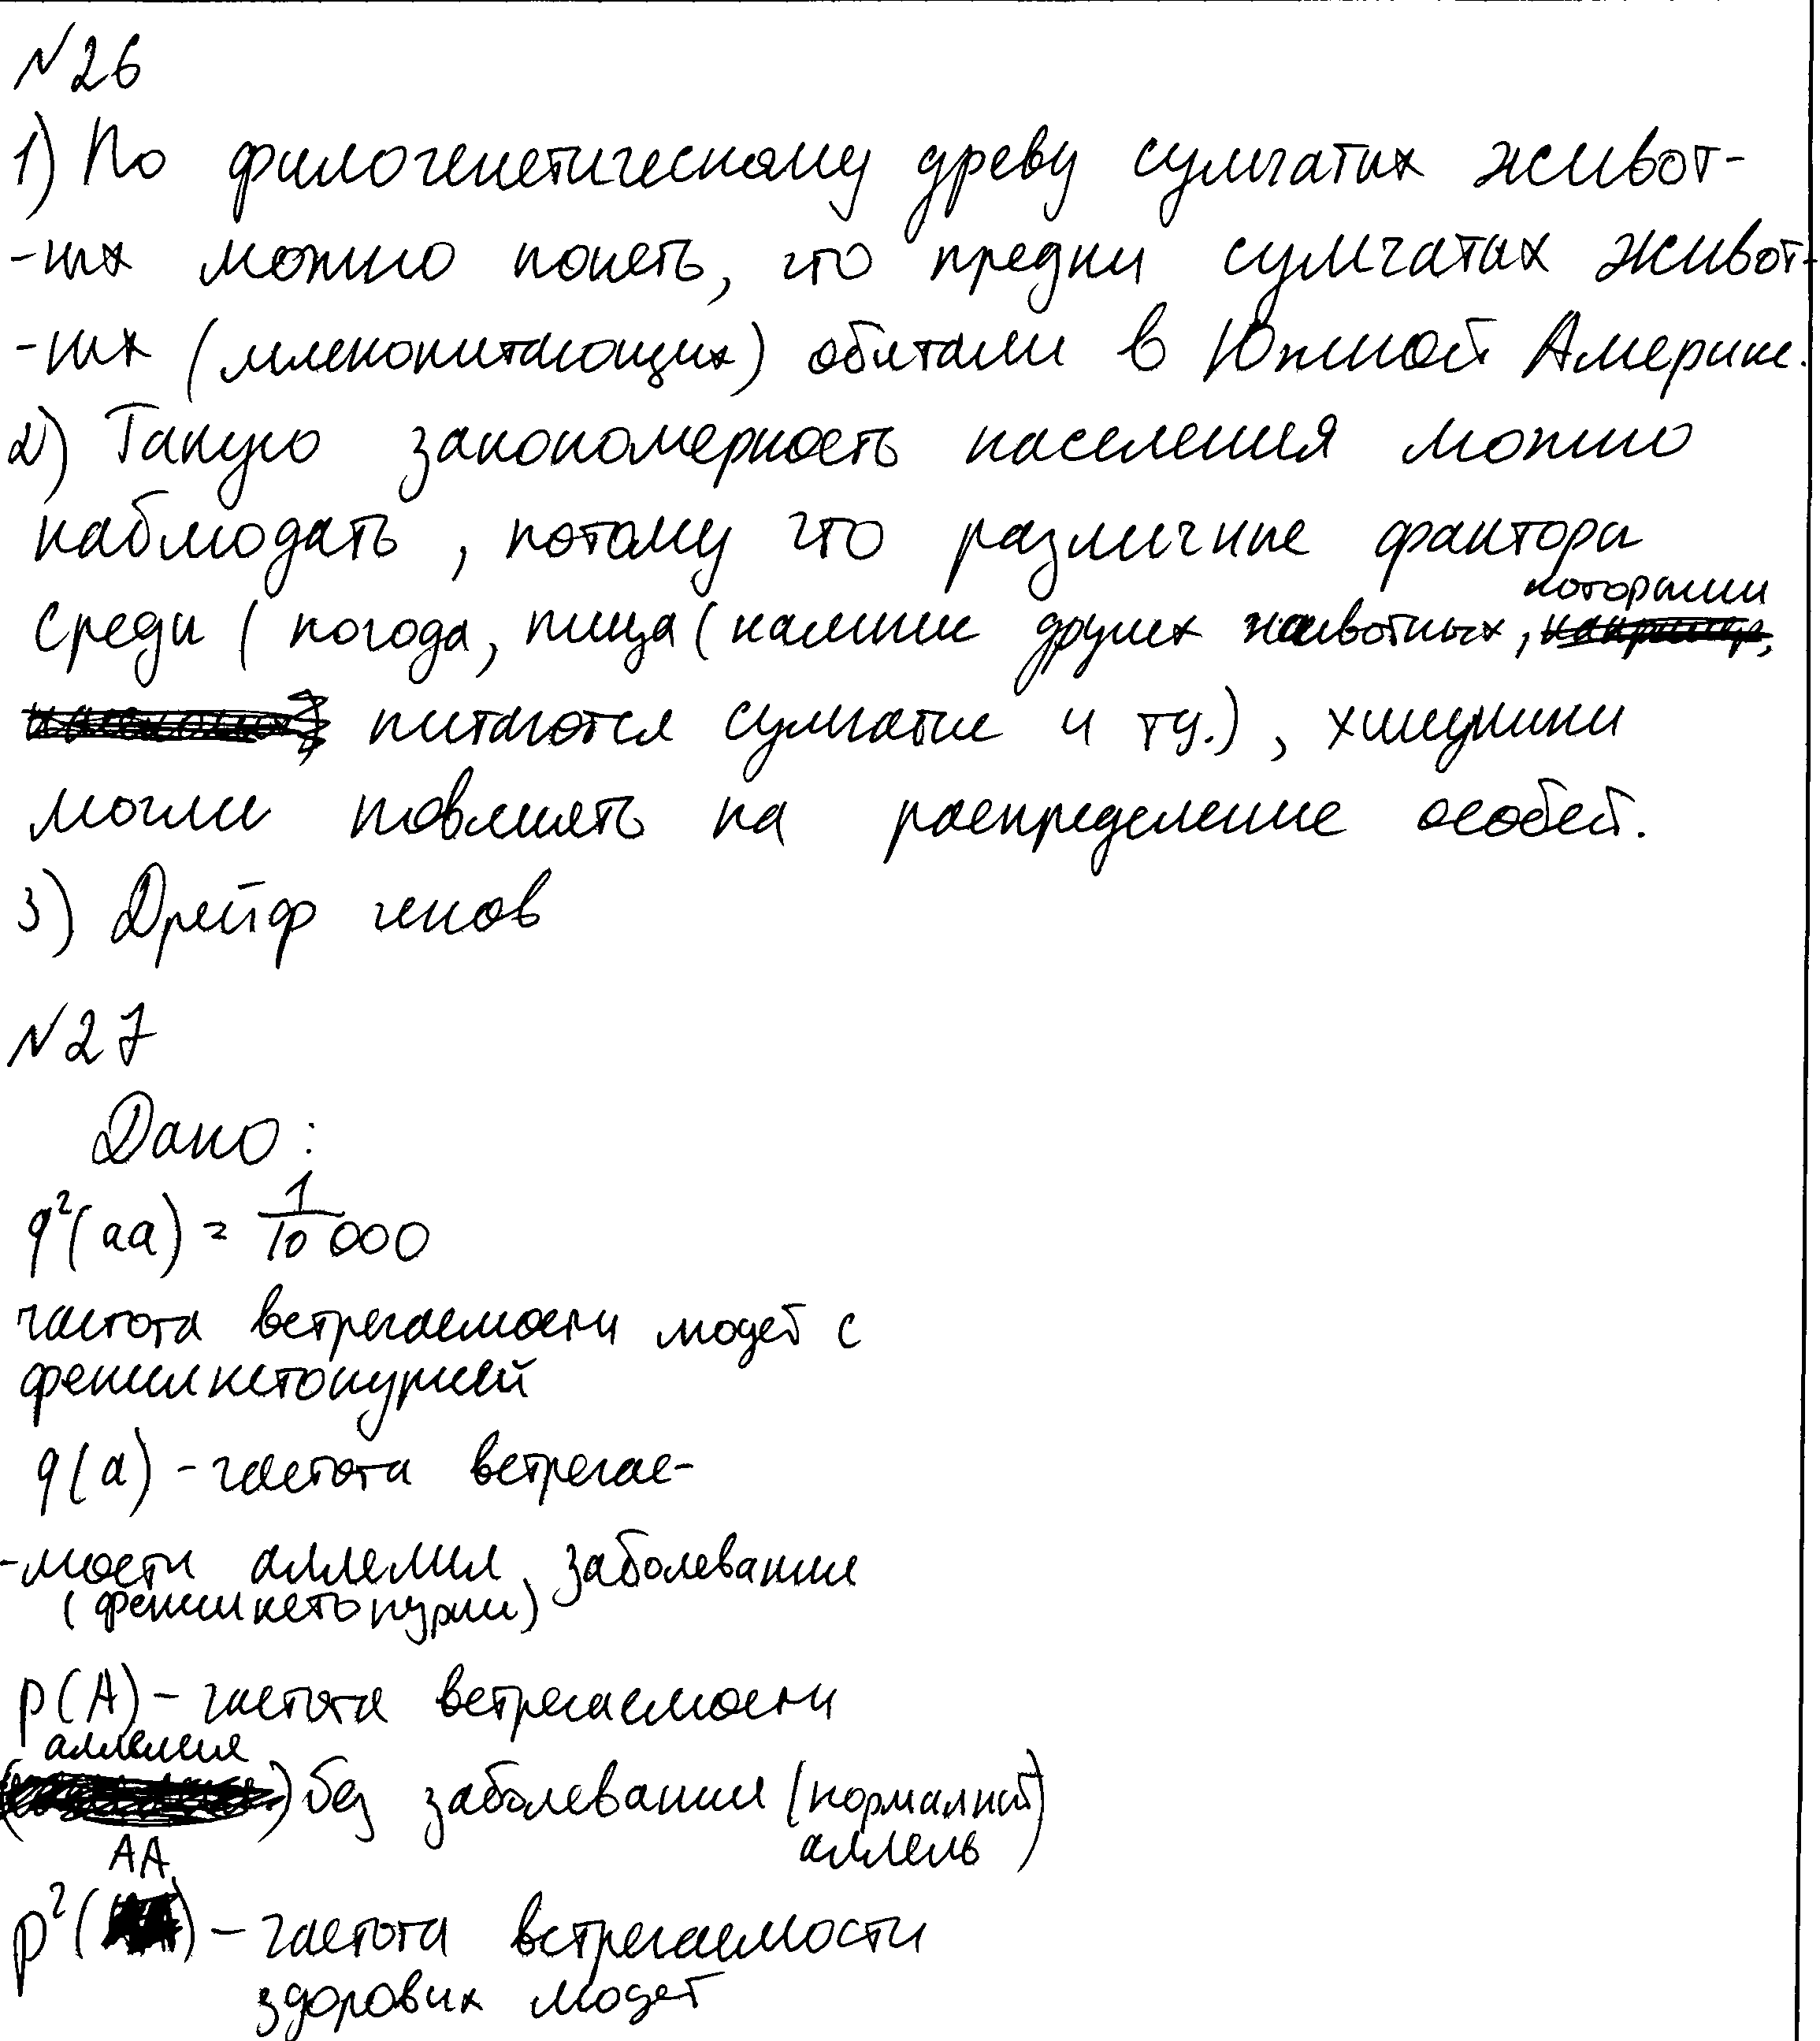 №26
1) По филогенетическому древу сумчатых живот-
-ных можно понять, что предки сумчатых живот-
-ных (млекопитающих) обитали в Южной Америке.
2) Такую закономерность населения можно
наблюдать, потому что различные факторы
которыми
среды (погода, пища (наличие других животных,
питаются сумчатые и тд.), хищники
могли повлиять на распределение особей.
3) Дрейф генов
№27
Дано:
q²(aa) = 1/10 000
частота встречаемости людей с
фенилкетонурией
q(a) - частота встречае-
-мости аллелия заболевания
(фенилкетонурии)
p(A) - частота встречаемости
аллелия
без заболевания (нормалный
аллель)
AA
p²( ) - частота встречаемости
здоровых людей